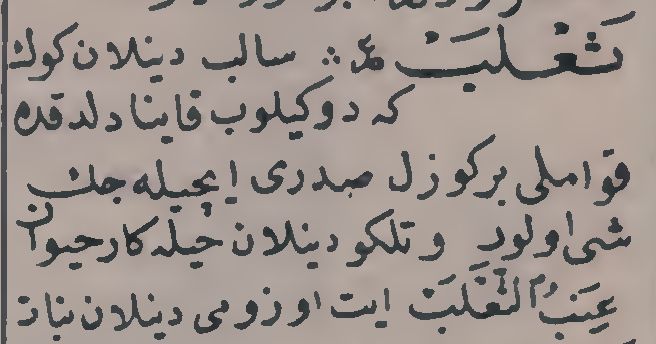 ثَعْلَبْ ع ∴ سالب دينلان كوك
كه دوكيلوب قاينادلدقده
قواملى بر كوزل صدرى ايچيله جك
شى اولور و تلكو دينلان حيله كار حيوان
عِنَبُ الثَّعْلَبْ ايت اوزومى دينلان نبات